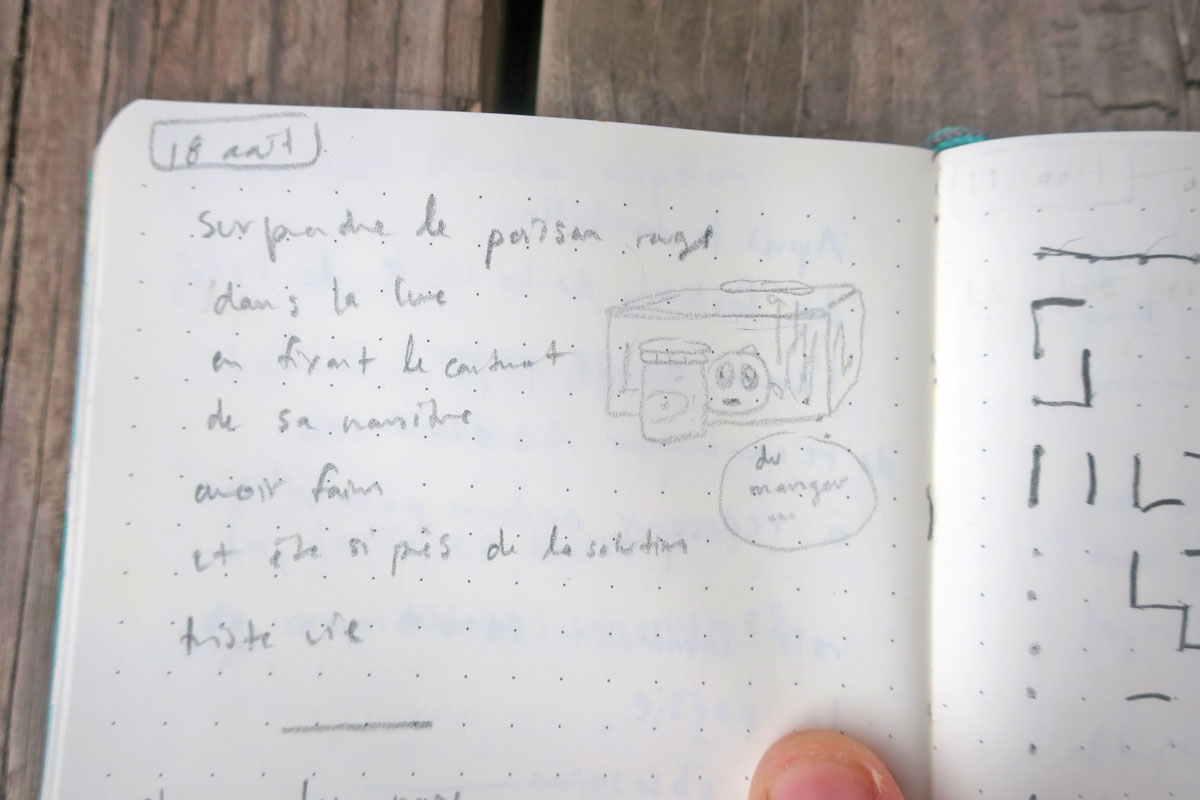 18 août
surprendre le poisson rouge
dans la lune
en fixant le
de sa
avoir faim
et être si près de la solution
triste vie
du
manger
...